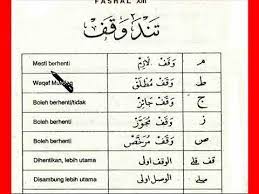 FASHAL XIII
تَنْدَ وَقَفْ
Mesti berhenti وَقَفْ لَازِمْ م
Waqaf وَقَفْ مُطْلَقْ ط
Boleh berhenti/tidak وَقَفْ جَائِزْ ج
Boleh berhenti وَقَفْ مُجَوَّزْ ز
Boleh berhenti وَقَفْ مُرَخَّصْ ص
Dihentikan, lebih utama الوقف اولى قف قلى
Disambung lebih utama الوصل اولى صلى